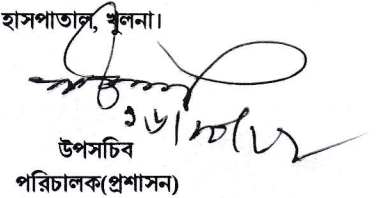 হাসপাতাল, খুলনা।
উপসচিব
পরিচালক(প্রশাসন)